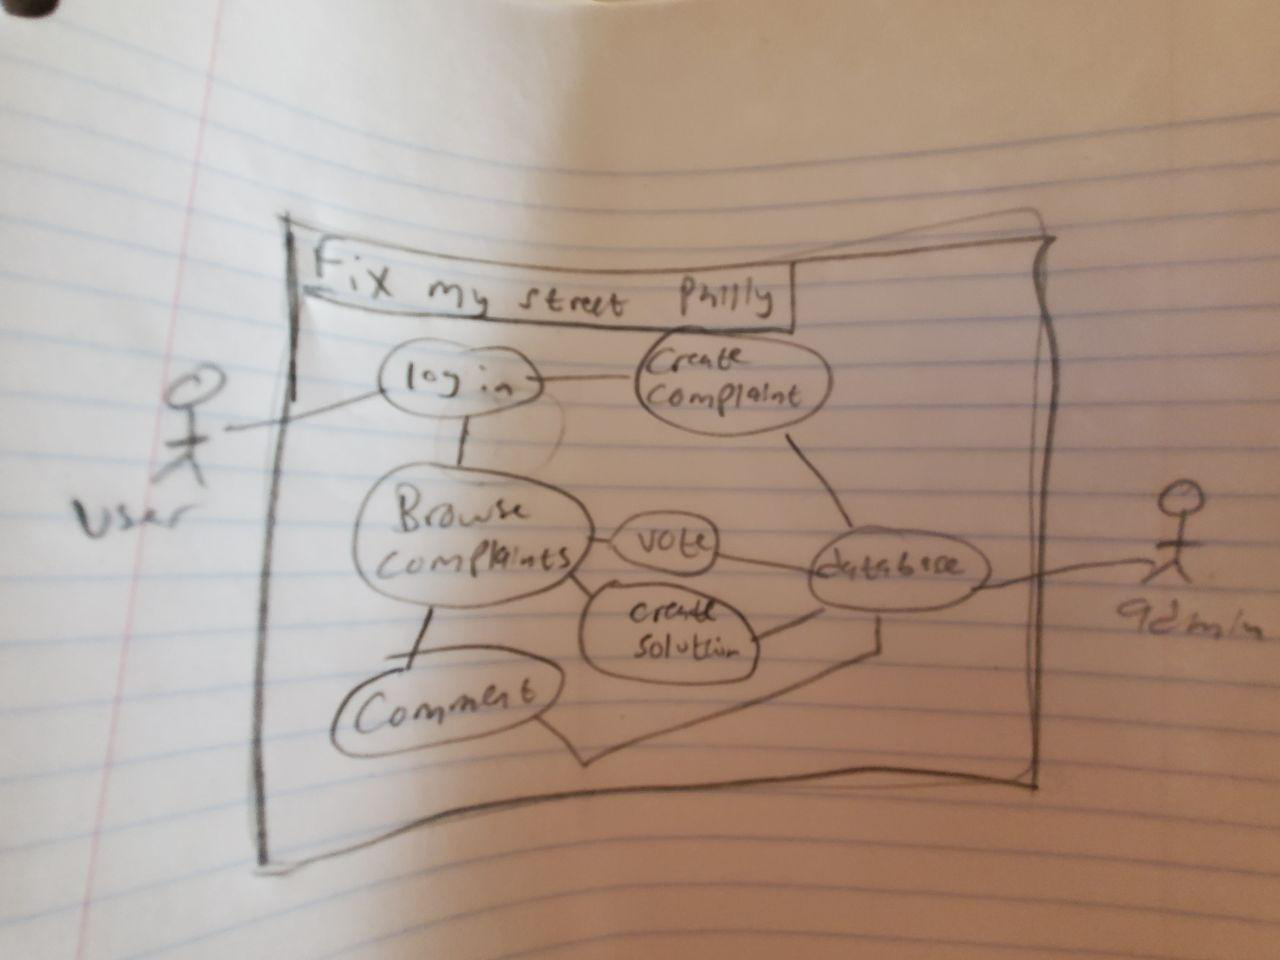 Fix my street Philly
log in
Create
Complaint
User
Browse
complaints
vote
database
create
solution
admin
Comment